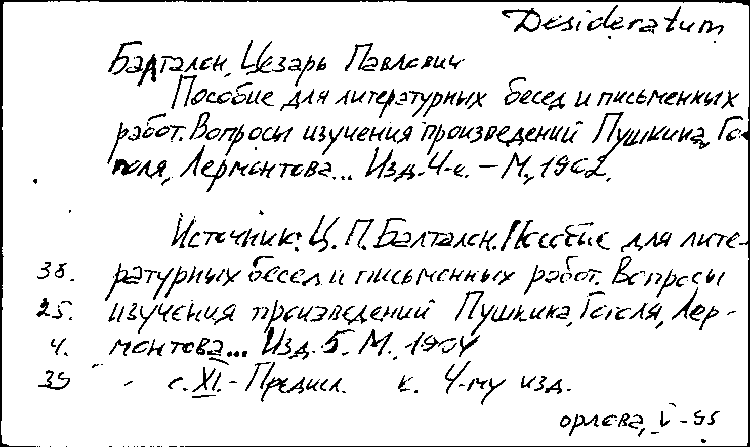 Desideratum
Балталон, Цезарь Павлович
Пособие для литературных бесед и письменных
работ. Вопросы изучения произведений Пушкина, Го-
голя, Лермонтова... Изд. 4-е. – М., 1902.
Источник: Ц. П. Балталон. Пособие для лите-
38. ратурных бесед и письменных работ. Вопросы
25. изучения произведений Пушкина, Гоголя, Лер-
4. монтова... Изд. 5. М., 1904
39 с. XI. - Предисл. к 4-му изд.
орлова, V-95